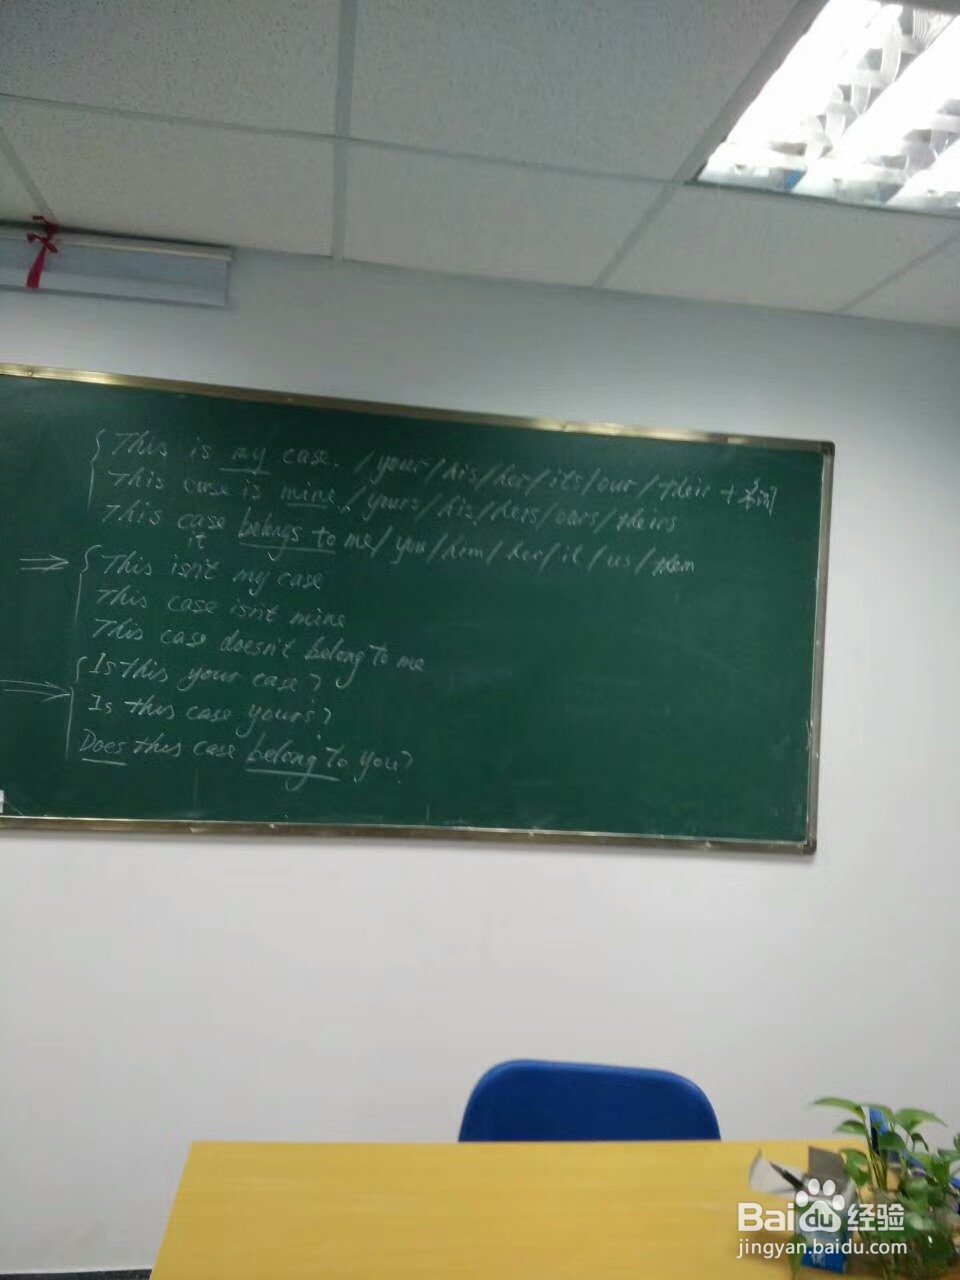 This is my case. /your/his/her/its/our/their + 名词
This case is mine. /yours/his/hers/ours/theirs
This case belongs to me/you/him/her/it/us/them
it
This isn't my case
This case isn't mine
This case doesn't belong to me
Is this your case?
Is this case yours?
Does this case belong to you?
Baidu经验
jingyan.baidu.com